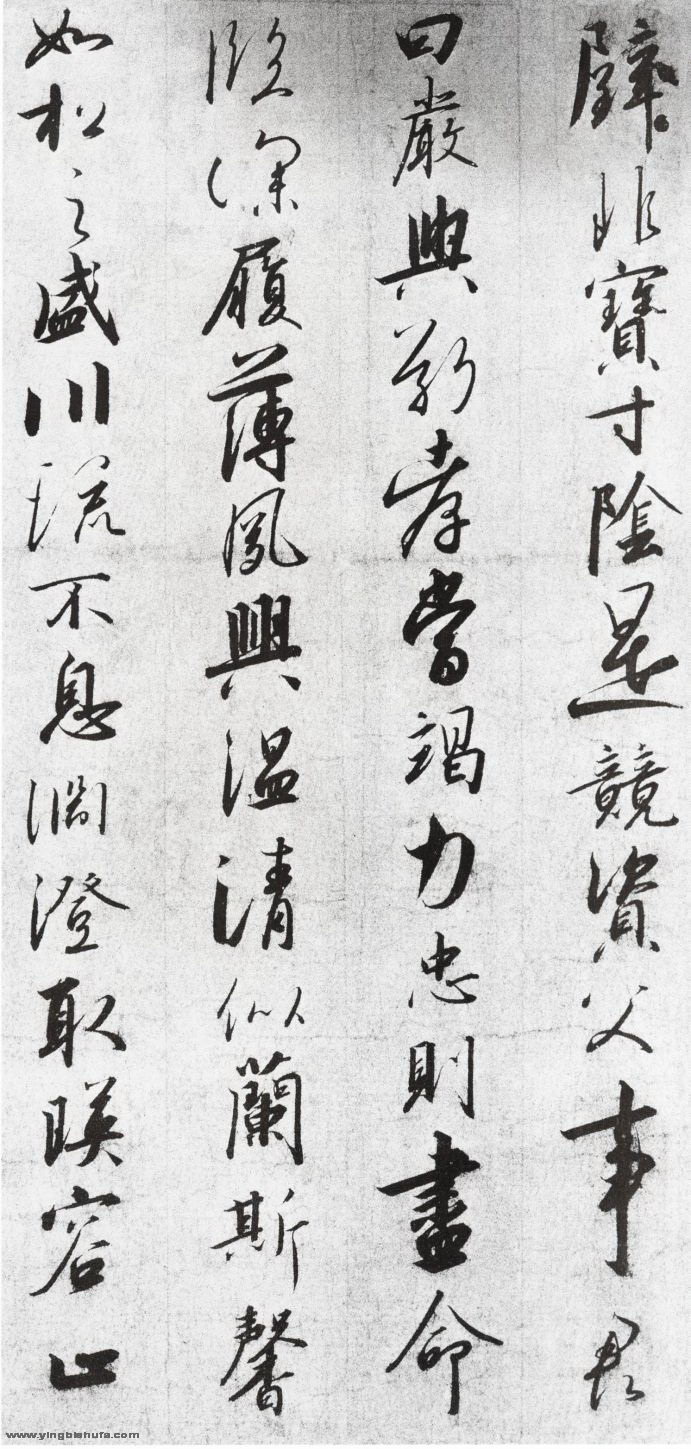 璧非寶寸陰是競資父事君
曰嚴與敬孝當竭力忠則盡命
臨深履薄夙興温清似蘭斯馨
如松之盛川流不息淵澄取暎容止
www.yingbishufa.com